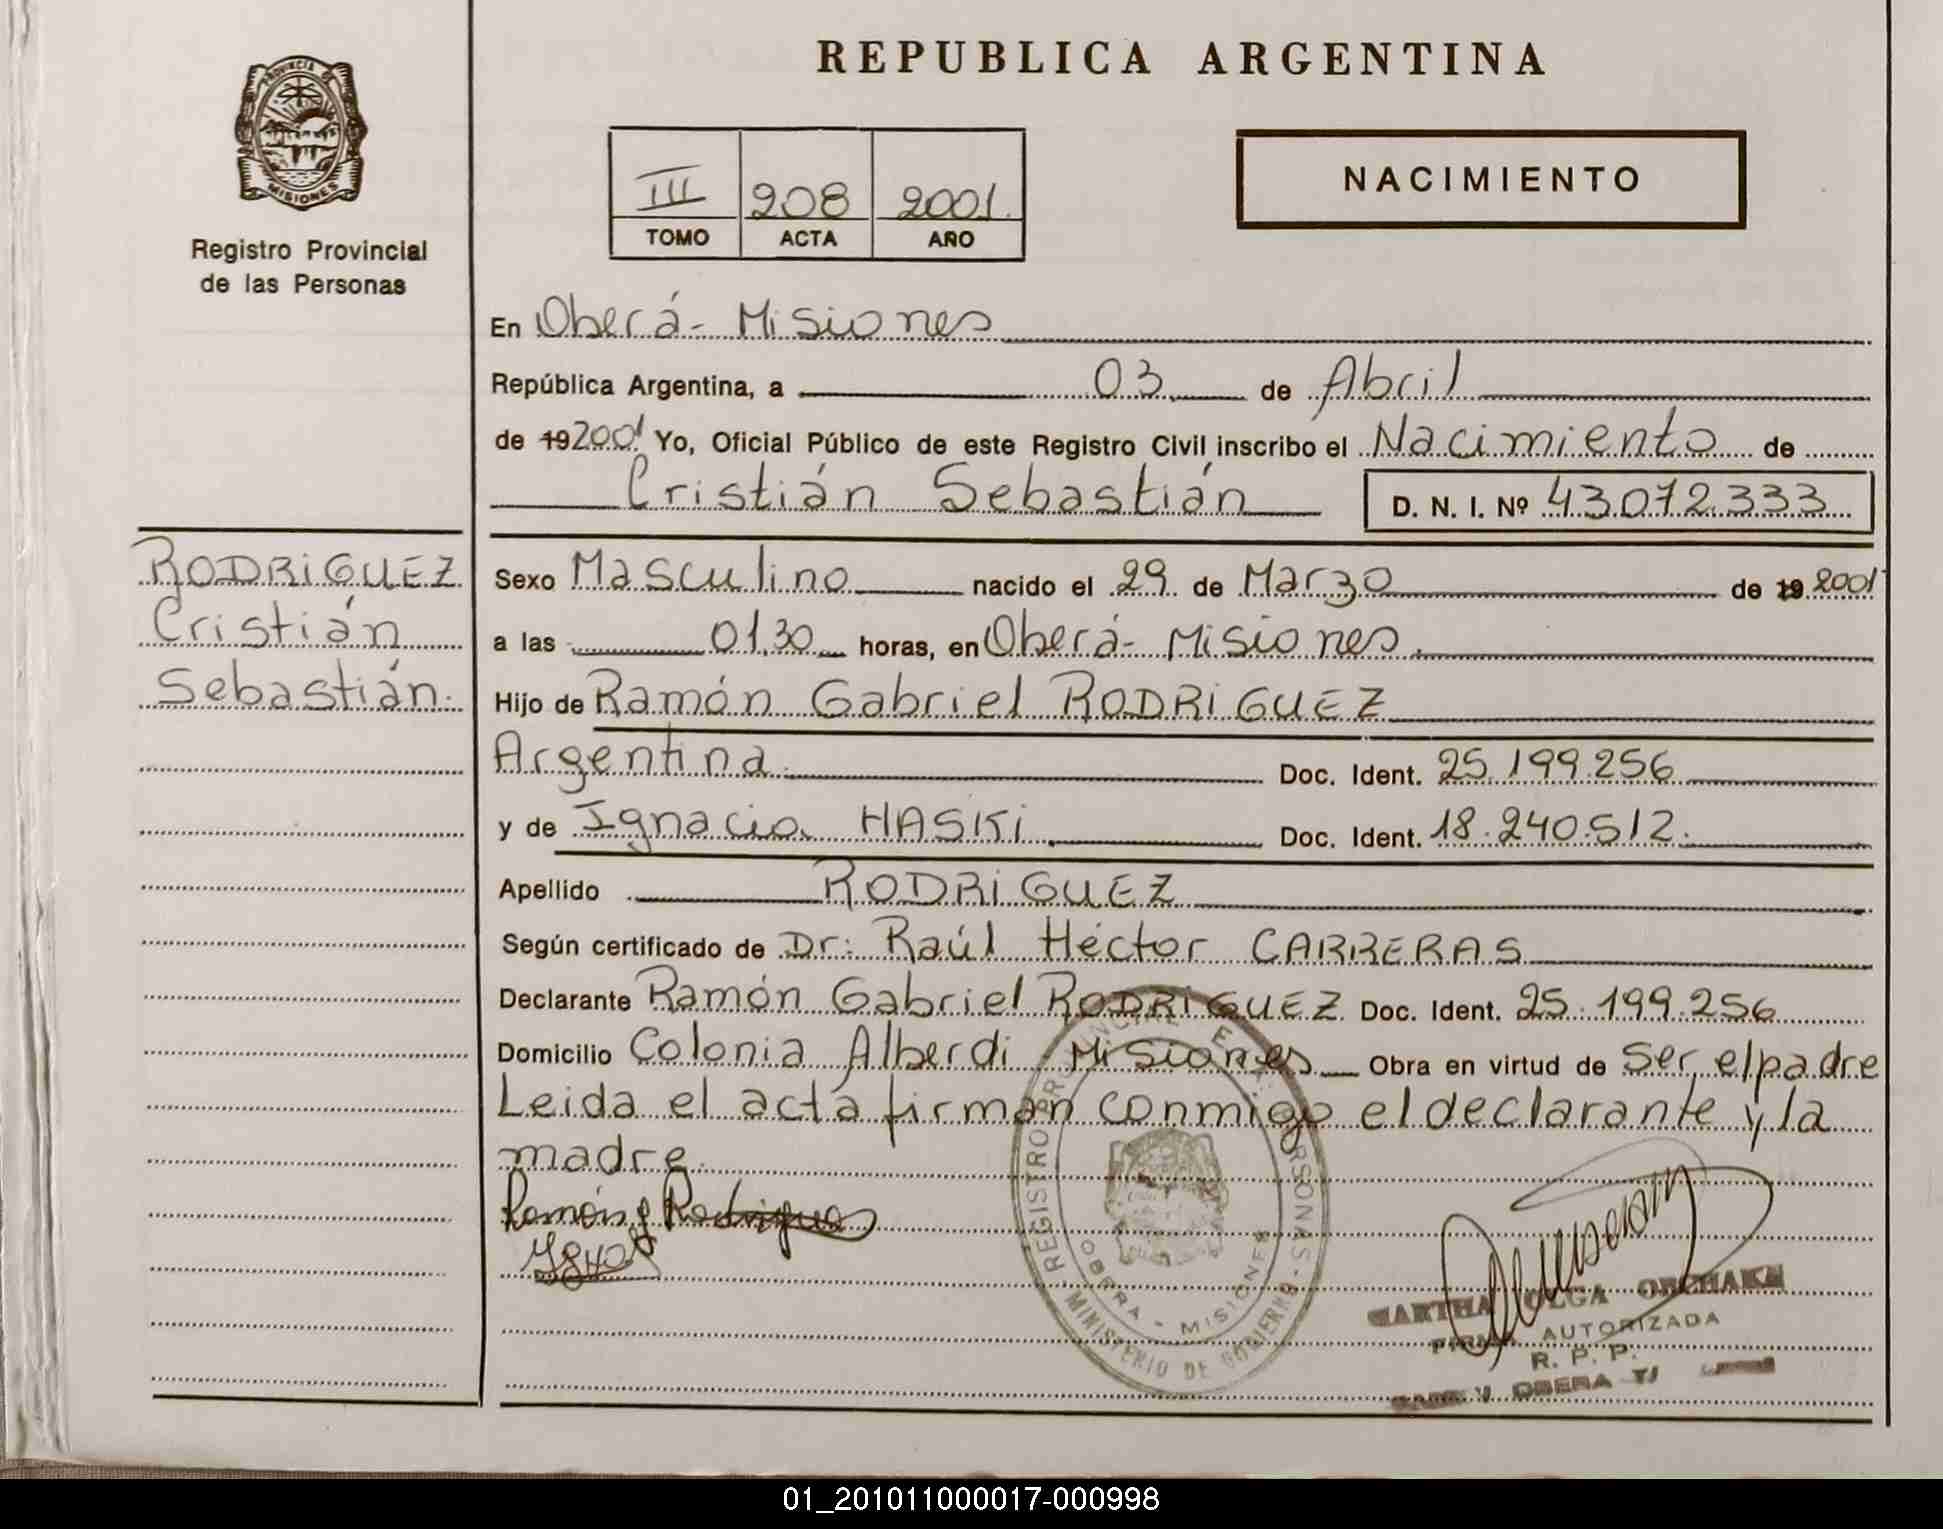 REPUBLICA ARGENTINA
PROVINCIA DE
MISIONES
Registro Provincial
de las Personas
III 208 2001.
TOMO ACTA AÑO
NACIMIENTO
En Oberá - Misiones
República Argentina, a 03 de Abril
de 19 2001 Yo, Oficial Público de este Registro Civil inscribo el Nacimiento de
Cristián Sebastián D. N. I. Nº 43072.333
RODRIGUEZ
Cristián
Sebastián.
Sexo Masculino nacido el 29 de Marzo de 19 2001
a las 01,30 horas, en Oberá - Misiones.
Hijo de Ramón Gabriel RODRIGUEZ
Argentina Doc. Ident. 25.199.256
y de Ignacia HASKi Doc. Ident. 18.240.512.
Apellido RODRIGUEZ
Según certificado de Dr: Raúl Héctor CARRERAS
Declarante Ramón Gabriel RODRIGUEZ Doc. Ident. 25.199.256
Domicilio Colonia Alberdi Misiones Obra en virtud de Ser el padre
Leida el acta firman conmigo el declarante y la
madre.
Ramón g Rodrigues
REGISTRO PROVINCIAL PERSONAS
OBERA - MISIONES
MINISTERIO DE GOBIERNO
MARTHA OLGA
FIRMA AUTORIZADA
R. P. P.
OBERA
01_201011000017-000998